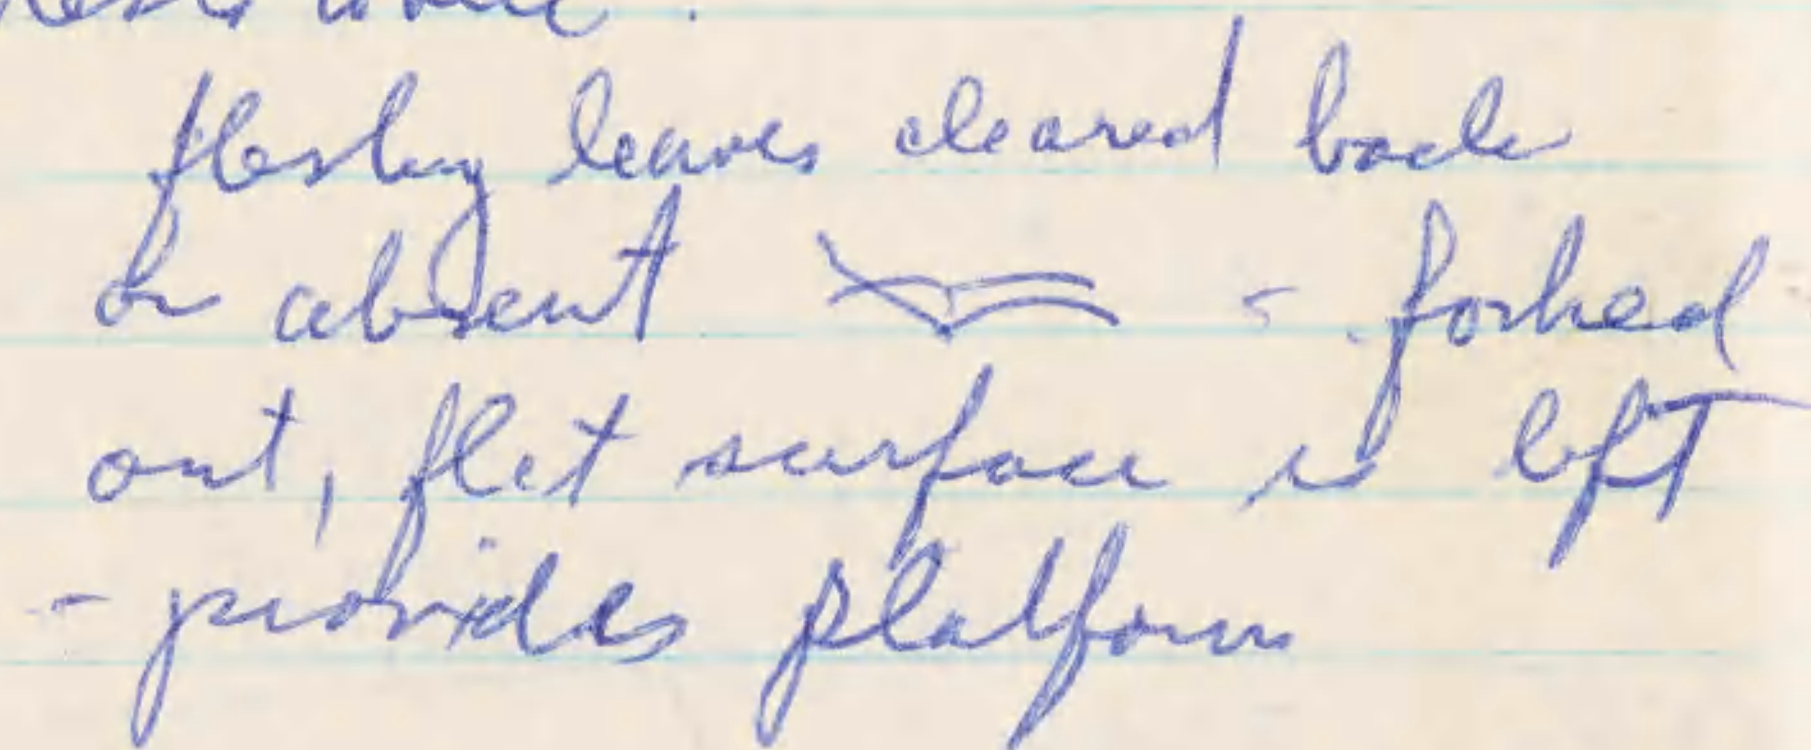 fleshy leaves cleared back
or absent - forked
out, flat surface is left
- provides platform